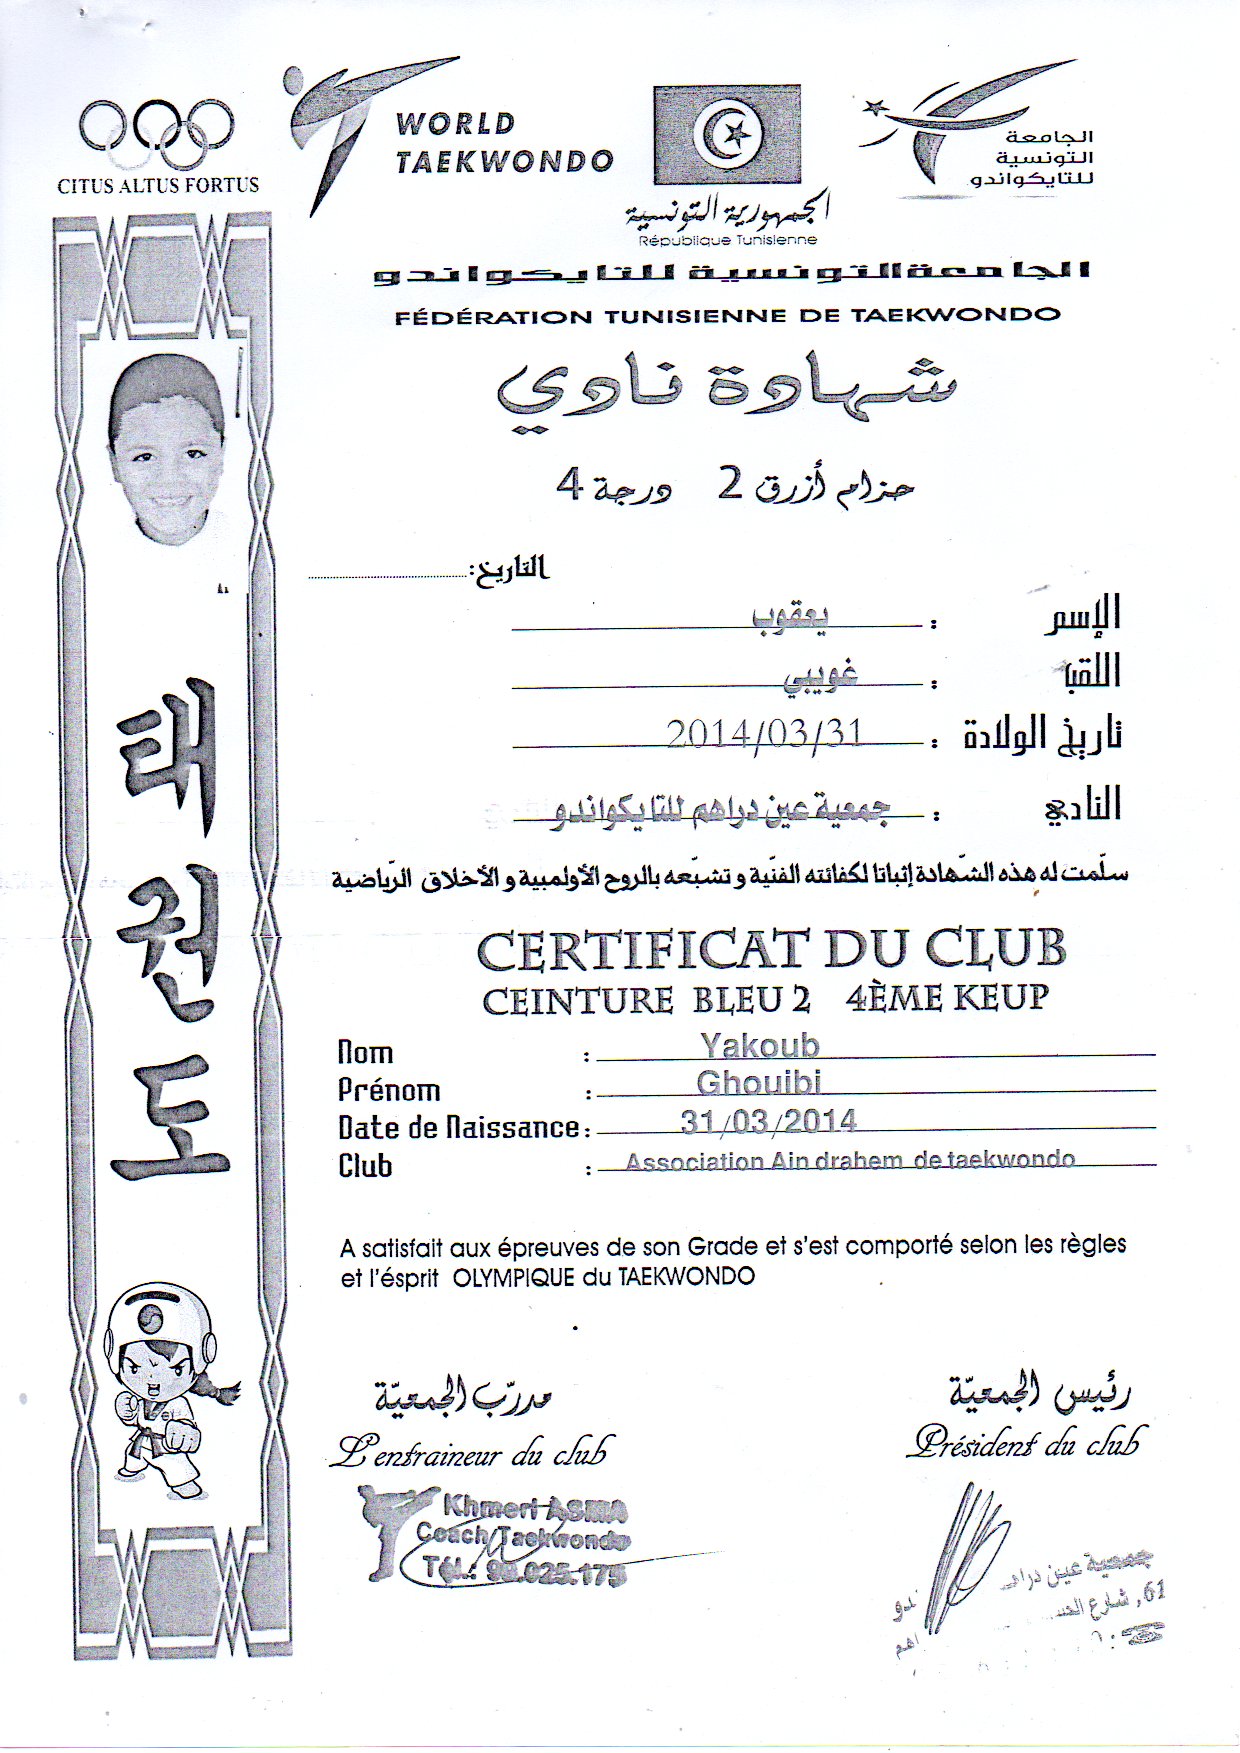 CITUS ALTUS FORTUS
WORLD
TAEKWONDO
الجمهورية التونسية
République Tunisienne
الجامعة
التونسية
للتايكواندو
الجامعة التونسية للتايكواندو
FÉDÉRATION TUNISIENNE DE TAEKWONDO
شهادة نادي
حزام أزرق 2 درجة 4
التاريخ:
الإسم : يعقوب
اللقب : غويبي
تاريخ الولادة : 2014/03/31
النادي : جمعية عين دراهم للتايكواندو
سلّمت له هذه الشّهادة إثباتا لكفائته الفنّية و تشبّعه بالروح الأولمبية و الأخلاق الرّياضية
태권도
CERTIFICAT DU CLUB
CEINTURE BLEU 2 4ÈME KEUP
Nom : Yakoub
Prénom : Ghouibi
Date de Naissance: 31/03/2014
Club : Association Ain drahem de taekwondo
A satisfait aux épreuves de son Grade et s'est comporté selon les règles
et l'ésprit OLYMPIQUE du TAEKWONDO
مدرّب الجمعيّة
L'entraineur du club
Khmeri ASMA
Coach Taekwondo
Tél.: 98.025.175
رئيس الجمعيّة
Président du club
جمعية عين دراهم
61, شارع